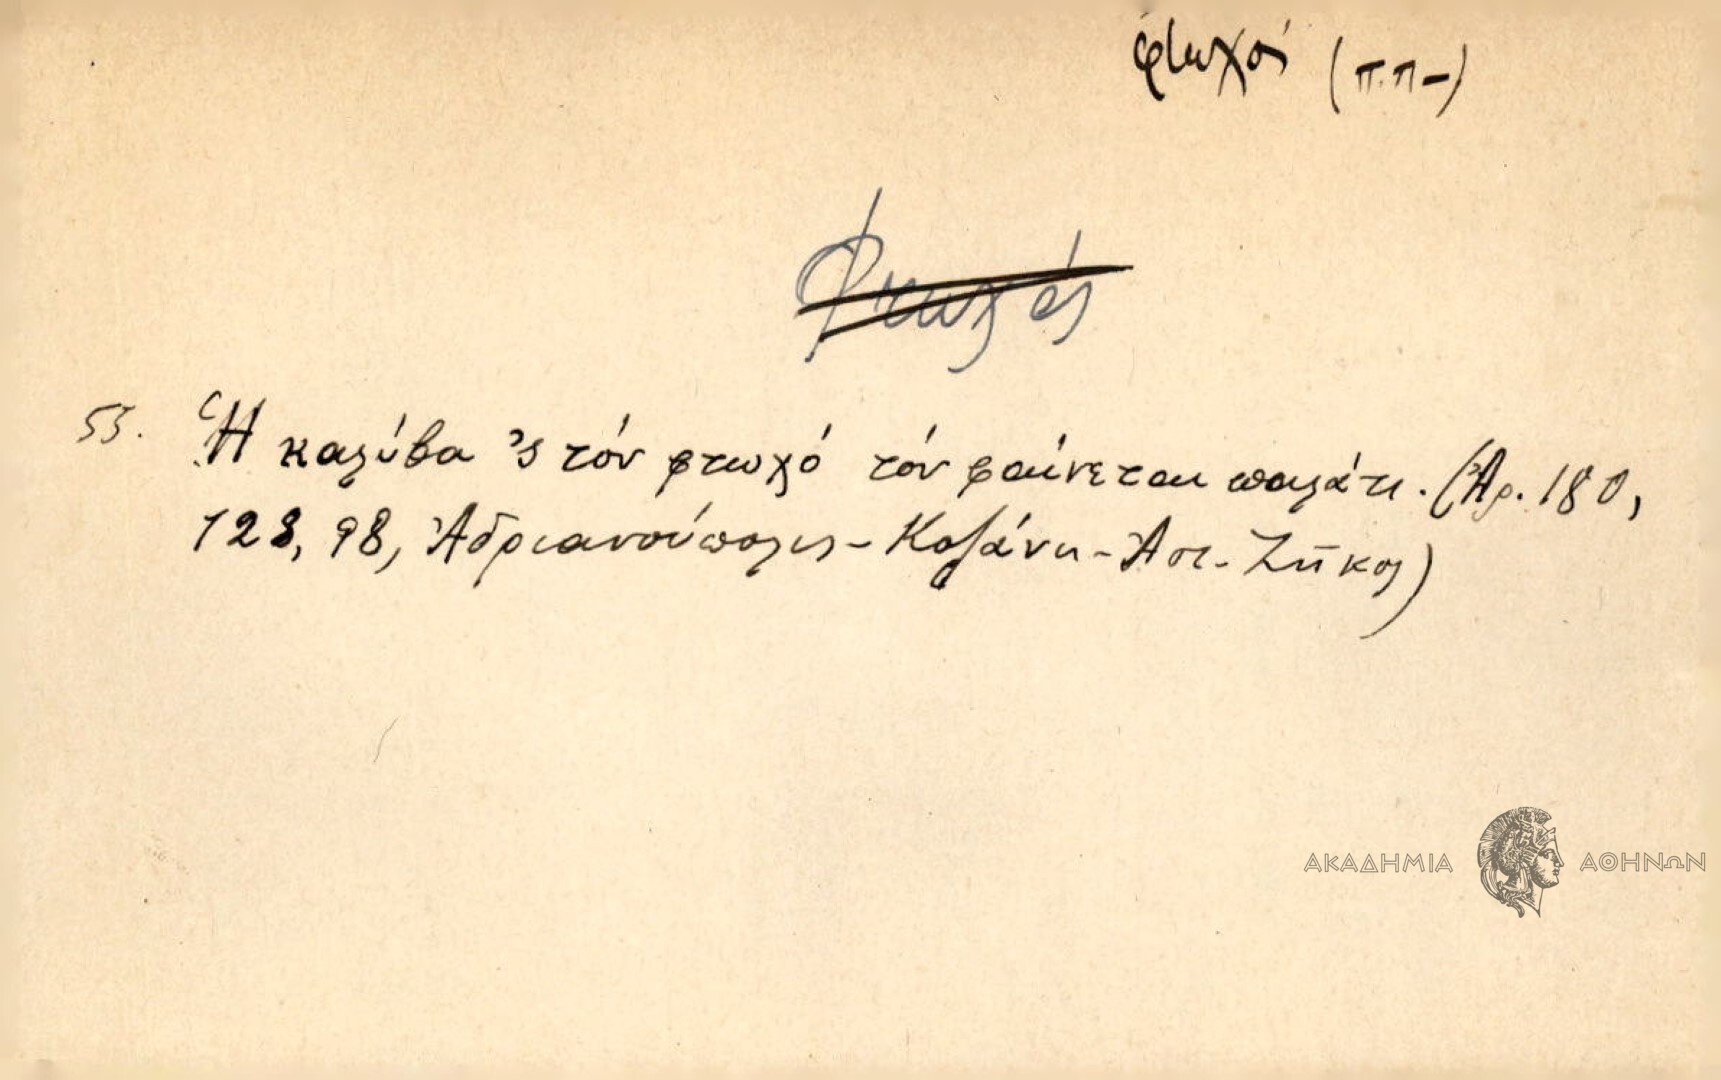 φτωχός (π.π-)
Φτωχός
53. Ἡ καλύβα 'ς τόν φτωχό τόν φαίνεται παλάτι. (Ἀρ. 180,
128, 98, Ἀδριανούπολις - Κοζάνη - Ἀστ. Ζῆκος)
ΑΚΑΔΗΜΙΑ ΑΘΗΝΩΝ